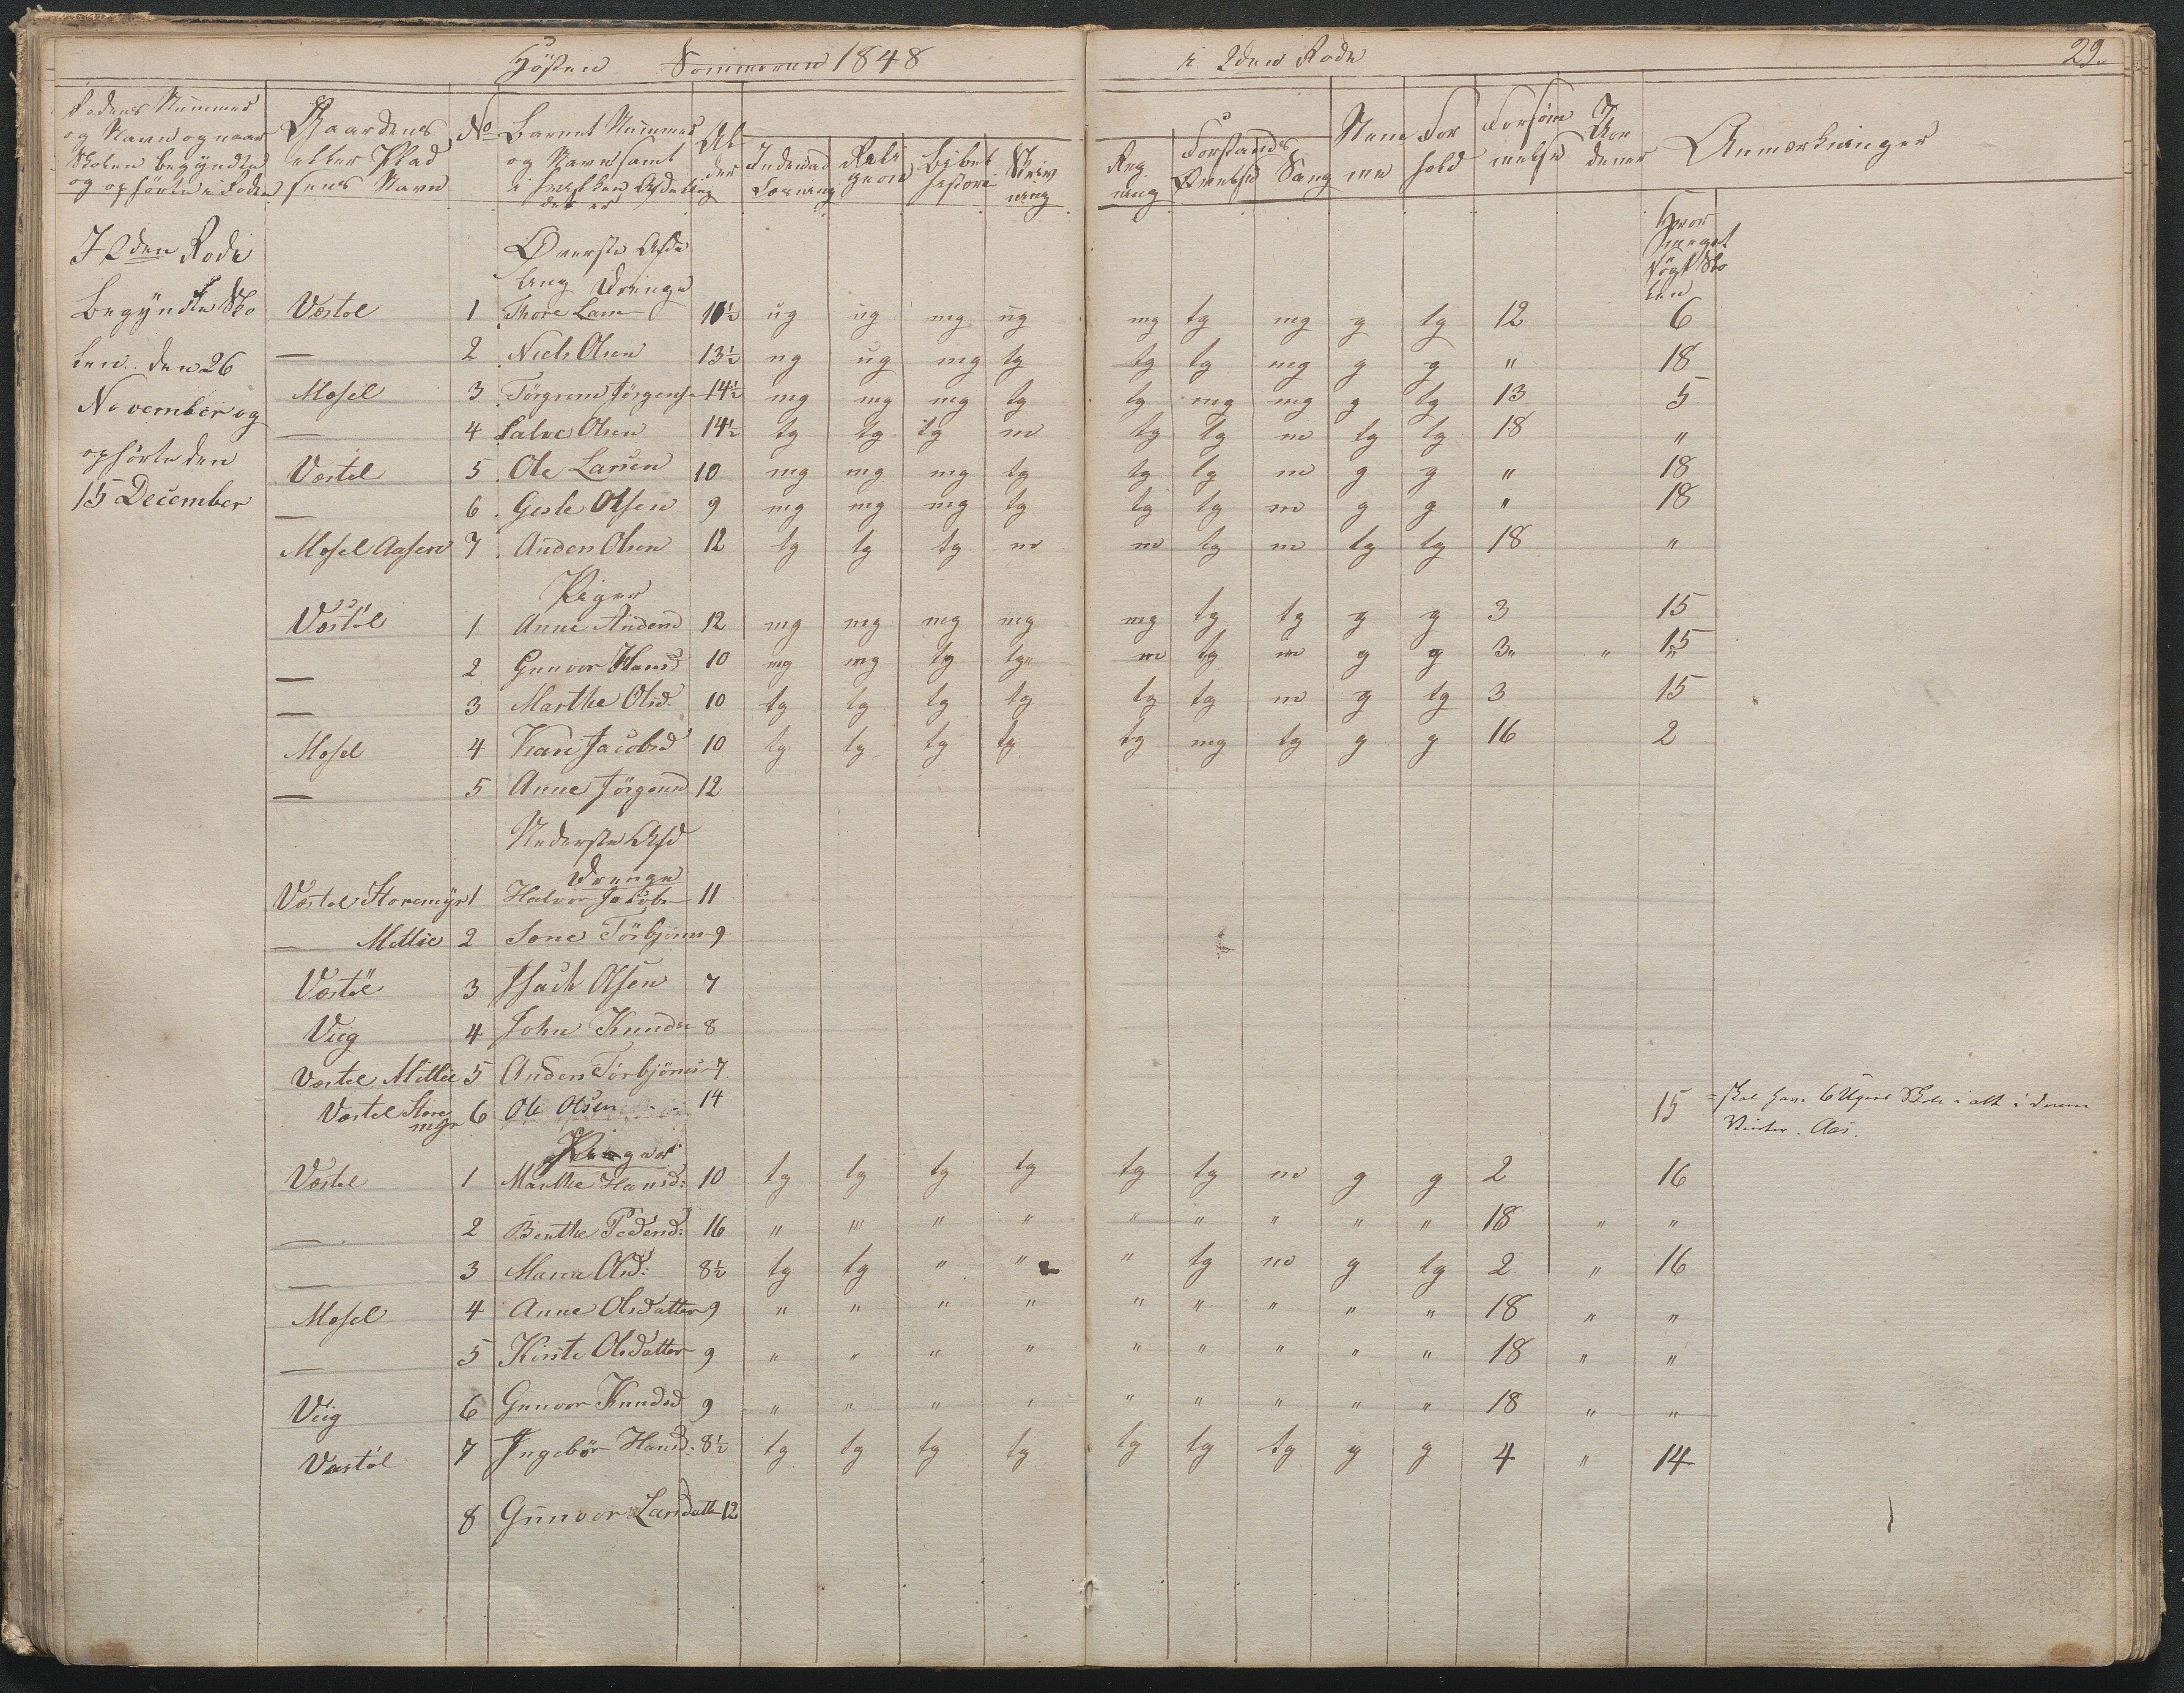 Høsten Sommeren 1848 i 2den Rode 29.
Rodens Nummer og Navn og naar Skolen begyndte og ophørte i Roden
Gaardens eller Pladsens Navn
No
Barnet Nummer og Navn samt i hvilken Afdeling det er
Alder
Indenad Læsning
Religion
Bibelhistorie
Skrivning
Regning
Forstands Øvelse
Sang
Nemme
Forhold
Forsømmelse
Anmærkninger
I 2den Rode
Begyndte Sko
len den 26
November og
ophørte den
15 December
Øverste Afde
ling Drenge
Hvor meget søgt Skolen
Væstøl 1 Thore Lars 10½ ug ug mg ug mg tg mg g tg 12 6
— 2 Niels Olsen 13½ ug ug mg tg tg tg mg g g " 18
Mosel 3 Jörgen Jörgens 14½ mg mg mg tg tg mg mg g tg 13 5
— 4 Salve Olsen 14½ tg tg tg m tg tg m tg tg 18 "
Væstøl 5 Ole Larsen 10 mg mg mg tg tg tg m g g " 18
— 6 Gisle Olsen 9 mg mg mg tg tg tg m g g " 18
Mosel Aasen 7 Anders Olsen 12 tg tg tg m m tg m tg tg 18 "
Piger
Væstøl 1 Anne Andersd 12 mg mg mg mg mg tg tg g g 3 15
— 2 Gunvor Hansd 10 mg mg tg tg" m tg m g g 3" " 15
— 3 Marthe Olsd: 10 tg tg tg tg tg tg m g tg 3 15
Mosel 4 Kari Jacobsd 10 tg tg tg tg tg mg tg g g 16 2
— 5 Anne Jörgensd 12
Nederste Afd
Drenge
Væstøl Storemyr 1 Halvor Jacobs 11
— Mellie 2 Sone Törbjörns 9
Væstøl 3 Isach Olsen 7
Viig 4 John Knuds 8
Væstøl Mellie 5 Anders Törbjörns 7
Væstøl Storemyr 6 Ole Olsen 14 15 = skal have 6 Ugers Skole i alt i denne
Vinter. Aas.
Piger
Væstøl 1 Marthe Hansd: 10 tg tg tg tg tg tg m g g 2 16
— 2 Benthe Pedersd: 16 " " " " " " " " " 18 " "
— 3 Maria Olsd: 8½ tg tg " " " tg m g tg 2 " 16
Mosel 4 Anne Olsdatter 9 " " " " " " " " " 18 " "
— 5 Kirste Olsdatter 9 " " " " " " " " " 18 " "
Viig 6 Gunvor Knudsd 9 " " " " " " " " " 18 " "
Væstøl 7 Ingebör Hansd: 8½ tg tg tg tg tg tg tg g g 4 " 14
8 Gunvor Larsdatt 12